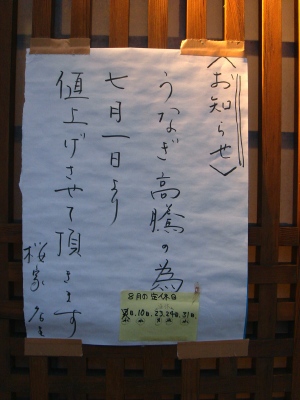 〈お知らせ〉
うなぎ高騰の為
七月一日より
値上げさせて頂きます
桜家
8月の定休日
10日、23、24日、31日